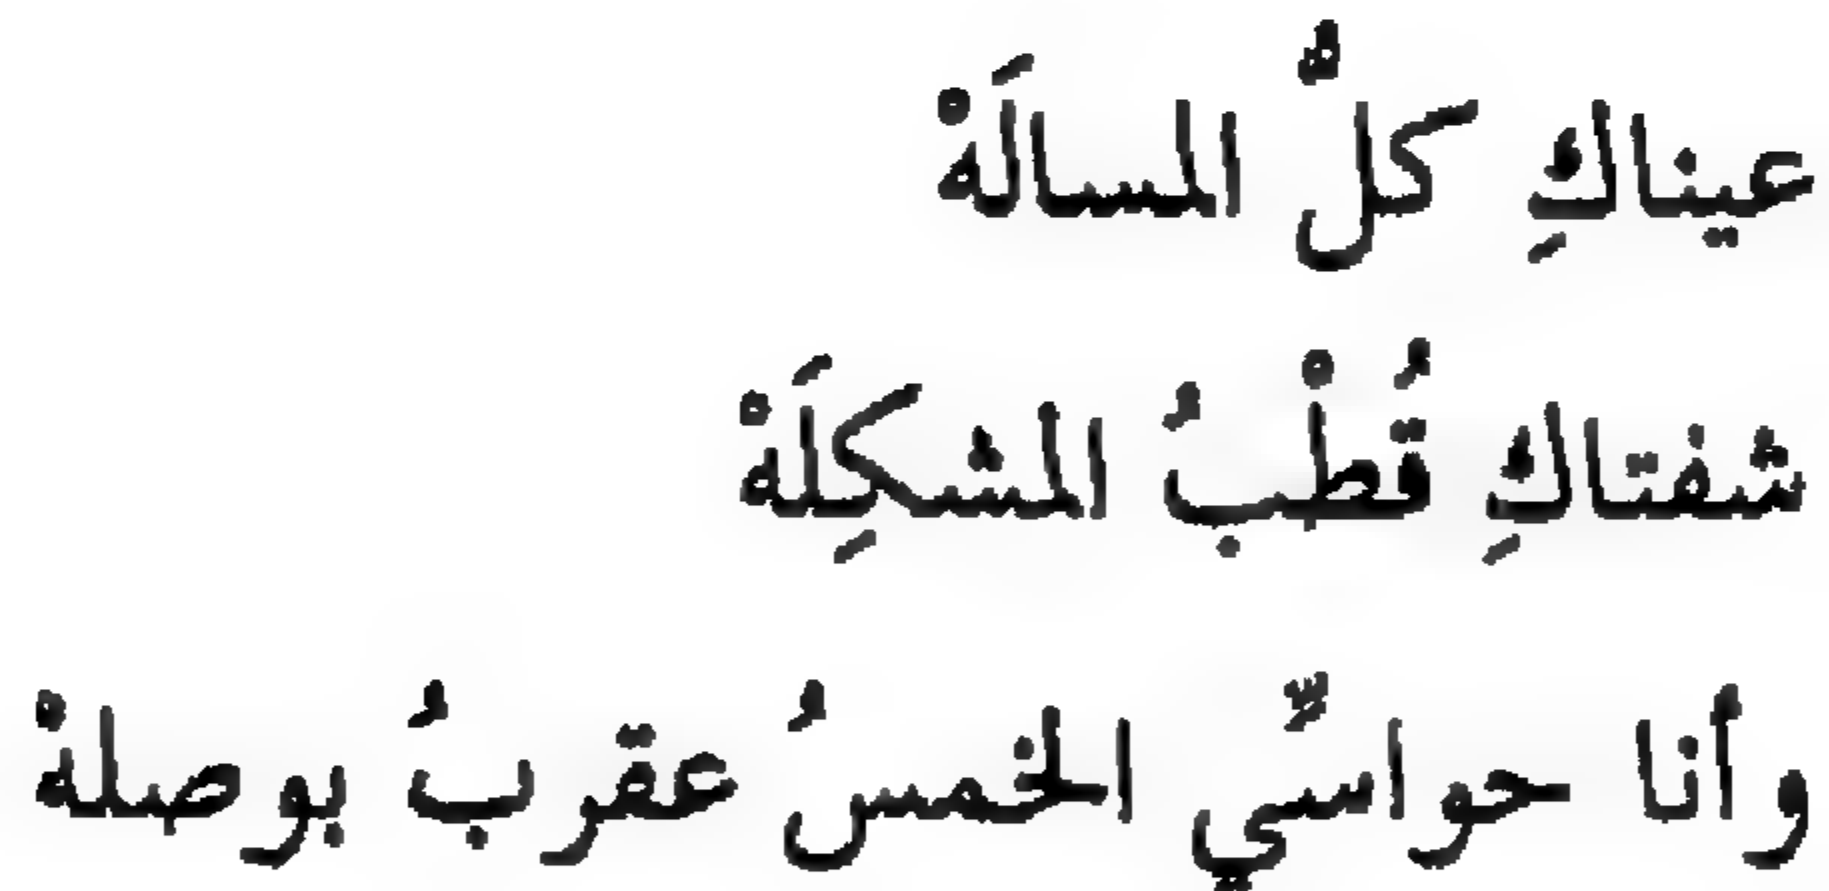 عيناكِ كلُّ المسالَهْ
شفتاكِ قُطْبُ المشكِلَهْ
وأنا حواسّي الخمسُ عقربُ بوصلهْ